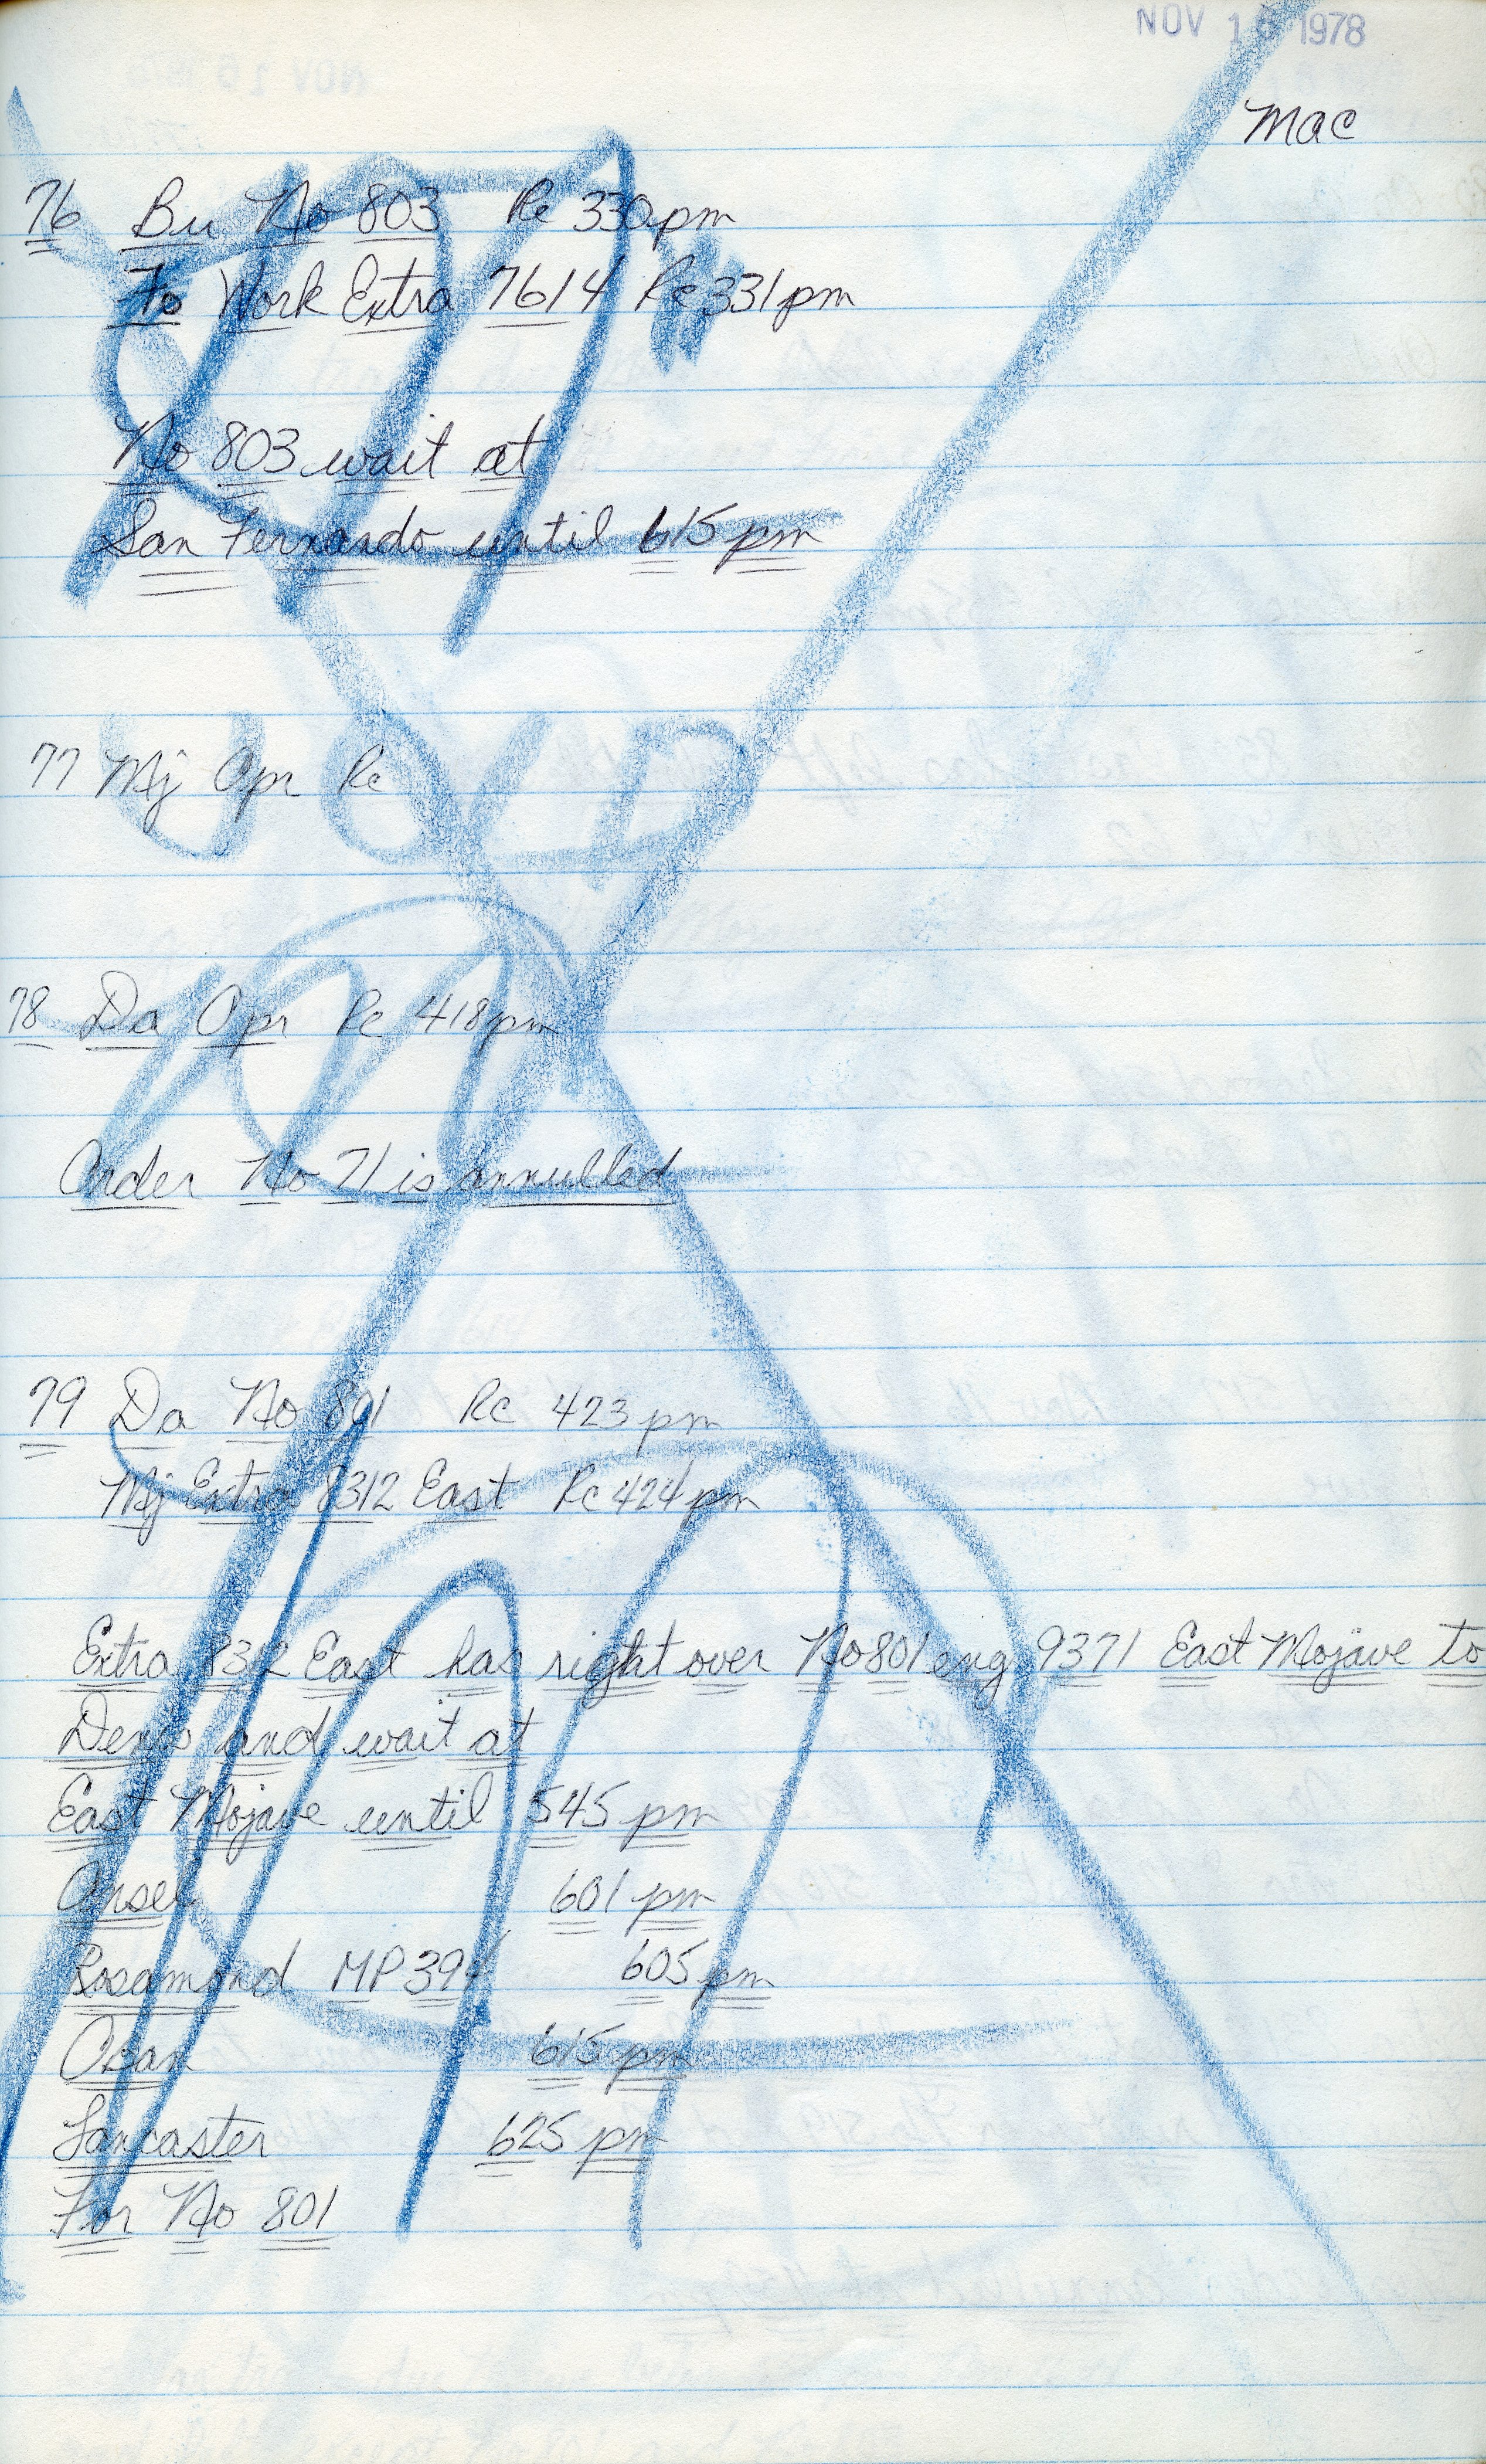 NOV 1 1978
Mac
76 Bu No 803 Rc 330pm
Fo Work Extra 7614 Rc 331pm
No 803 wait at
San Fernando until 615 pm
77 Mj Opr Rc
VOID
78 Da Opr Rc 418pm
Order No 71 is annulled
79 Da No 801 Rc 423 pm
Mj Extra 8312 East Rc 424 pm
Extra 8312 East has right over No 801 eng 9371 East Mojave to
Denis and wait at
East Mojave until 545 pm
Ansel 601 pm
Rosamond MP 601 605 pm
Oban 615 pm
Lancaster 625 pm
For No 801